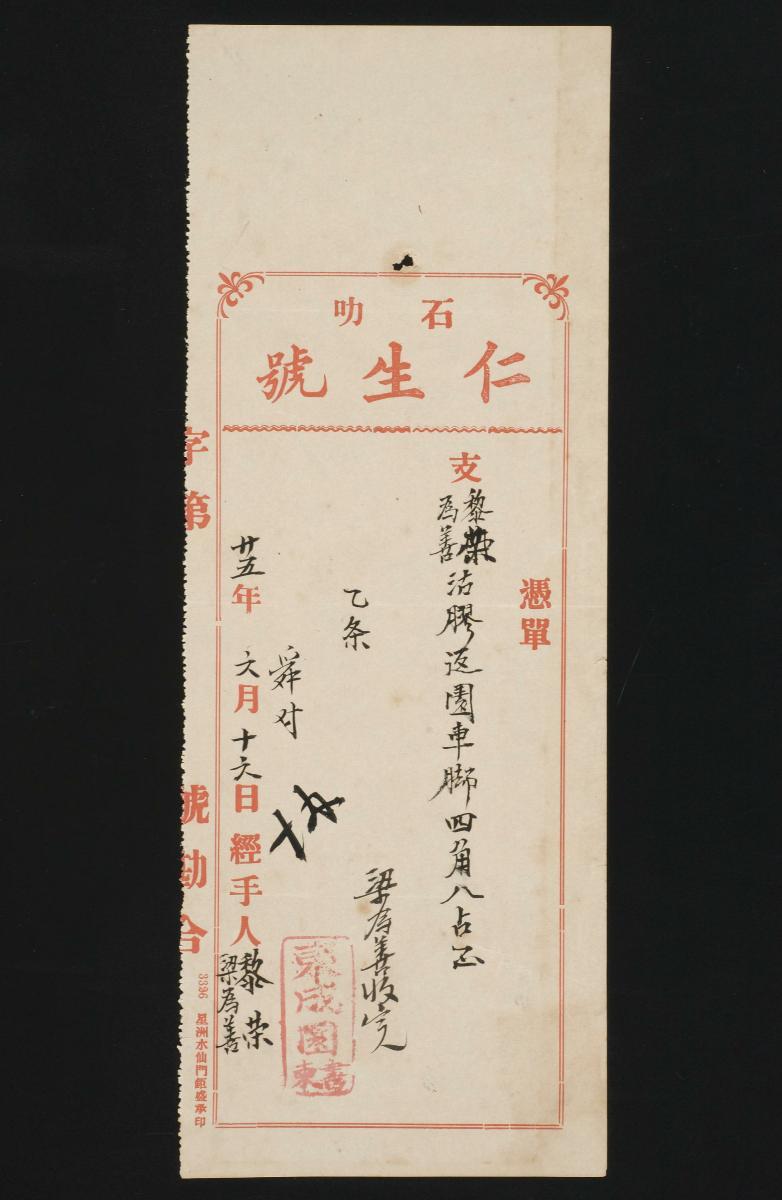 石叻
仁生號
憑單
支
黎榮
為善
沽膠返園車脚四角八占正
梁為善收完
乙条
舜对
廿五年六月十六日經手人
黎荣
梁為善
成園
書柬
字第 號勘合
3396 星洲水仙門鉅盛承印